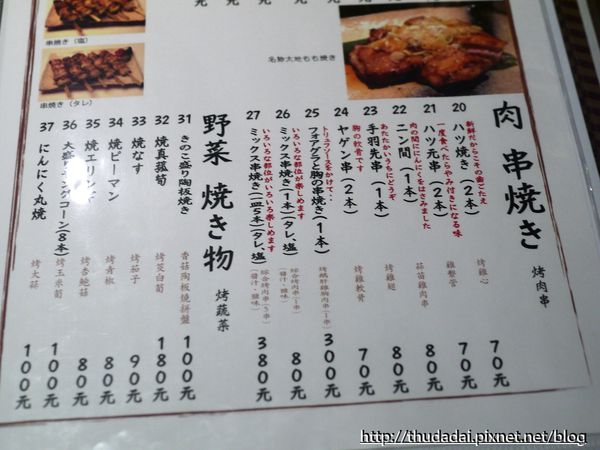 元 元 元 元
串焼き（塩）
串焼き（タレ）
名物大地もも焼き
肉 串焼き
烤肉串
20 新鮮だからこその歯ごたえ
ハツ焼き（2本）
烤雞心
70元
21 一度食べたらやみ付きになる味
ハツ元串（2本）
雞繫管
80元
22 肉の間ににんにくをはさみました
ニン間（1本）
蒜苗雞肉串
80元
23 あたたかいうちにどうぞ
手羽先串（1本）
烤雞翅
80元
24 胸の軟骨です
ヤゲン串（2本）
烤雞軟骨
70元
25 トリュフソースをかけて・・
フォアグラと胸の串焼き（1本）
烤鵝肝雞胸肉串（1串）
300元
26 いろいろな部位が楽しめます
ミックス串焼き（1本）（タレ、塩）
綜合烤肉串（1串）
（醬汁、鹽味）
80元
27 いろいろな部位がいろいろ楽しめます
ミックス串焼き（一皿5本）（タレ、塩）
綜合烤肉串（5串）
（醬汁、鹽味）
380元
野菜 焼き物
烤蔬菜
31 きのこ盛り陶板焼き
香菇陶板燒拼盤
100元
32 焼真菰筍
烤茭白筍
180元
33 焼なす
烤茄子
90元
34 焼ピーマン
烤青椒
80元
35 焼エリンギ
烤杏鮑菇
80元
36 大盛りヤングコーン（8本）
烤玉米筍
100元
37 にんにく丸焼
烤大蒜
100元
http://thudadai.pixnet.net/blog